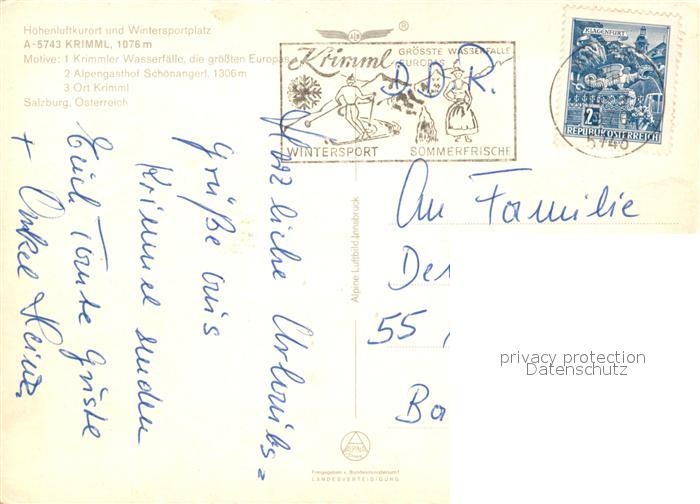 Höhenluftkurort und Wintersportplatz
A-5743 KRIMML, 1076 m
Motive: 1 Krimmler Wasserfälle, die größten Europas
2 Alpengasthof Schönangerl, 1306 m
3 Ort Krimml
Salzburg, Österreich
®
Krimml
GRÖSSTE WASSERFÄLLE
EUROPAS
WINTERSPORT SOMMERFRISCHE
D.D.R.
KLAGENFURT
2
REPUBLIK ÖSTERREICH
Herzliche Urlaubs=
Grüße aus
Krimml senden
Euch Tante Guste
+ Onkel Heinz.
Alpine Luftbild Innsbruck
An Familie
De
55
Ba
privacy protection
Datenschutz
ALPINE
Freigegeben v. Bundesministerium f.
LANDESVERTEIDIGUNG